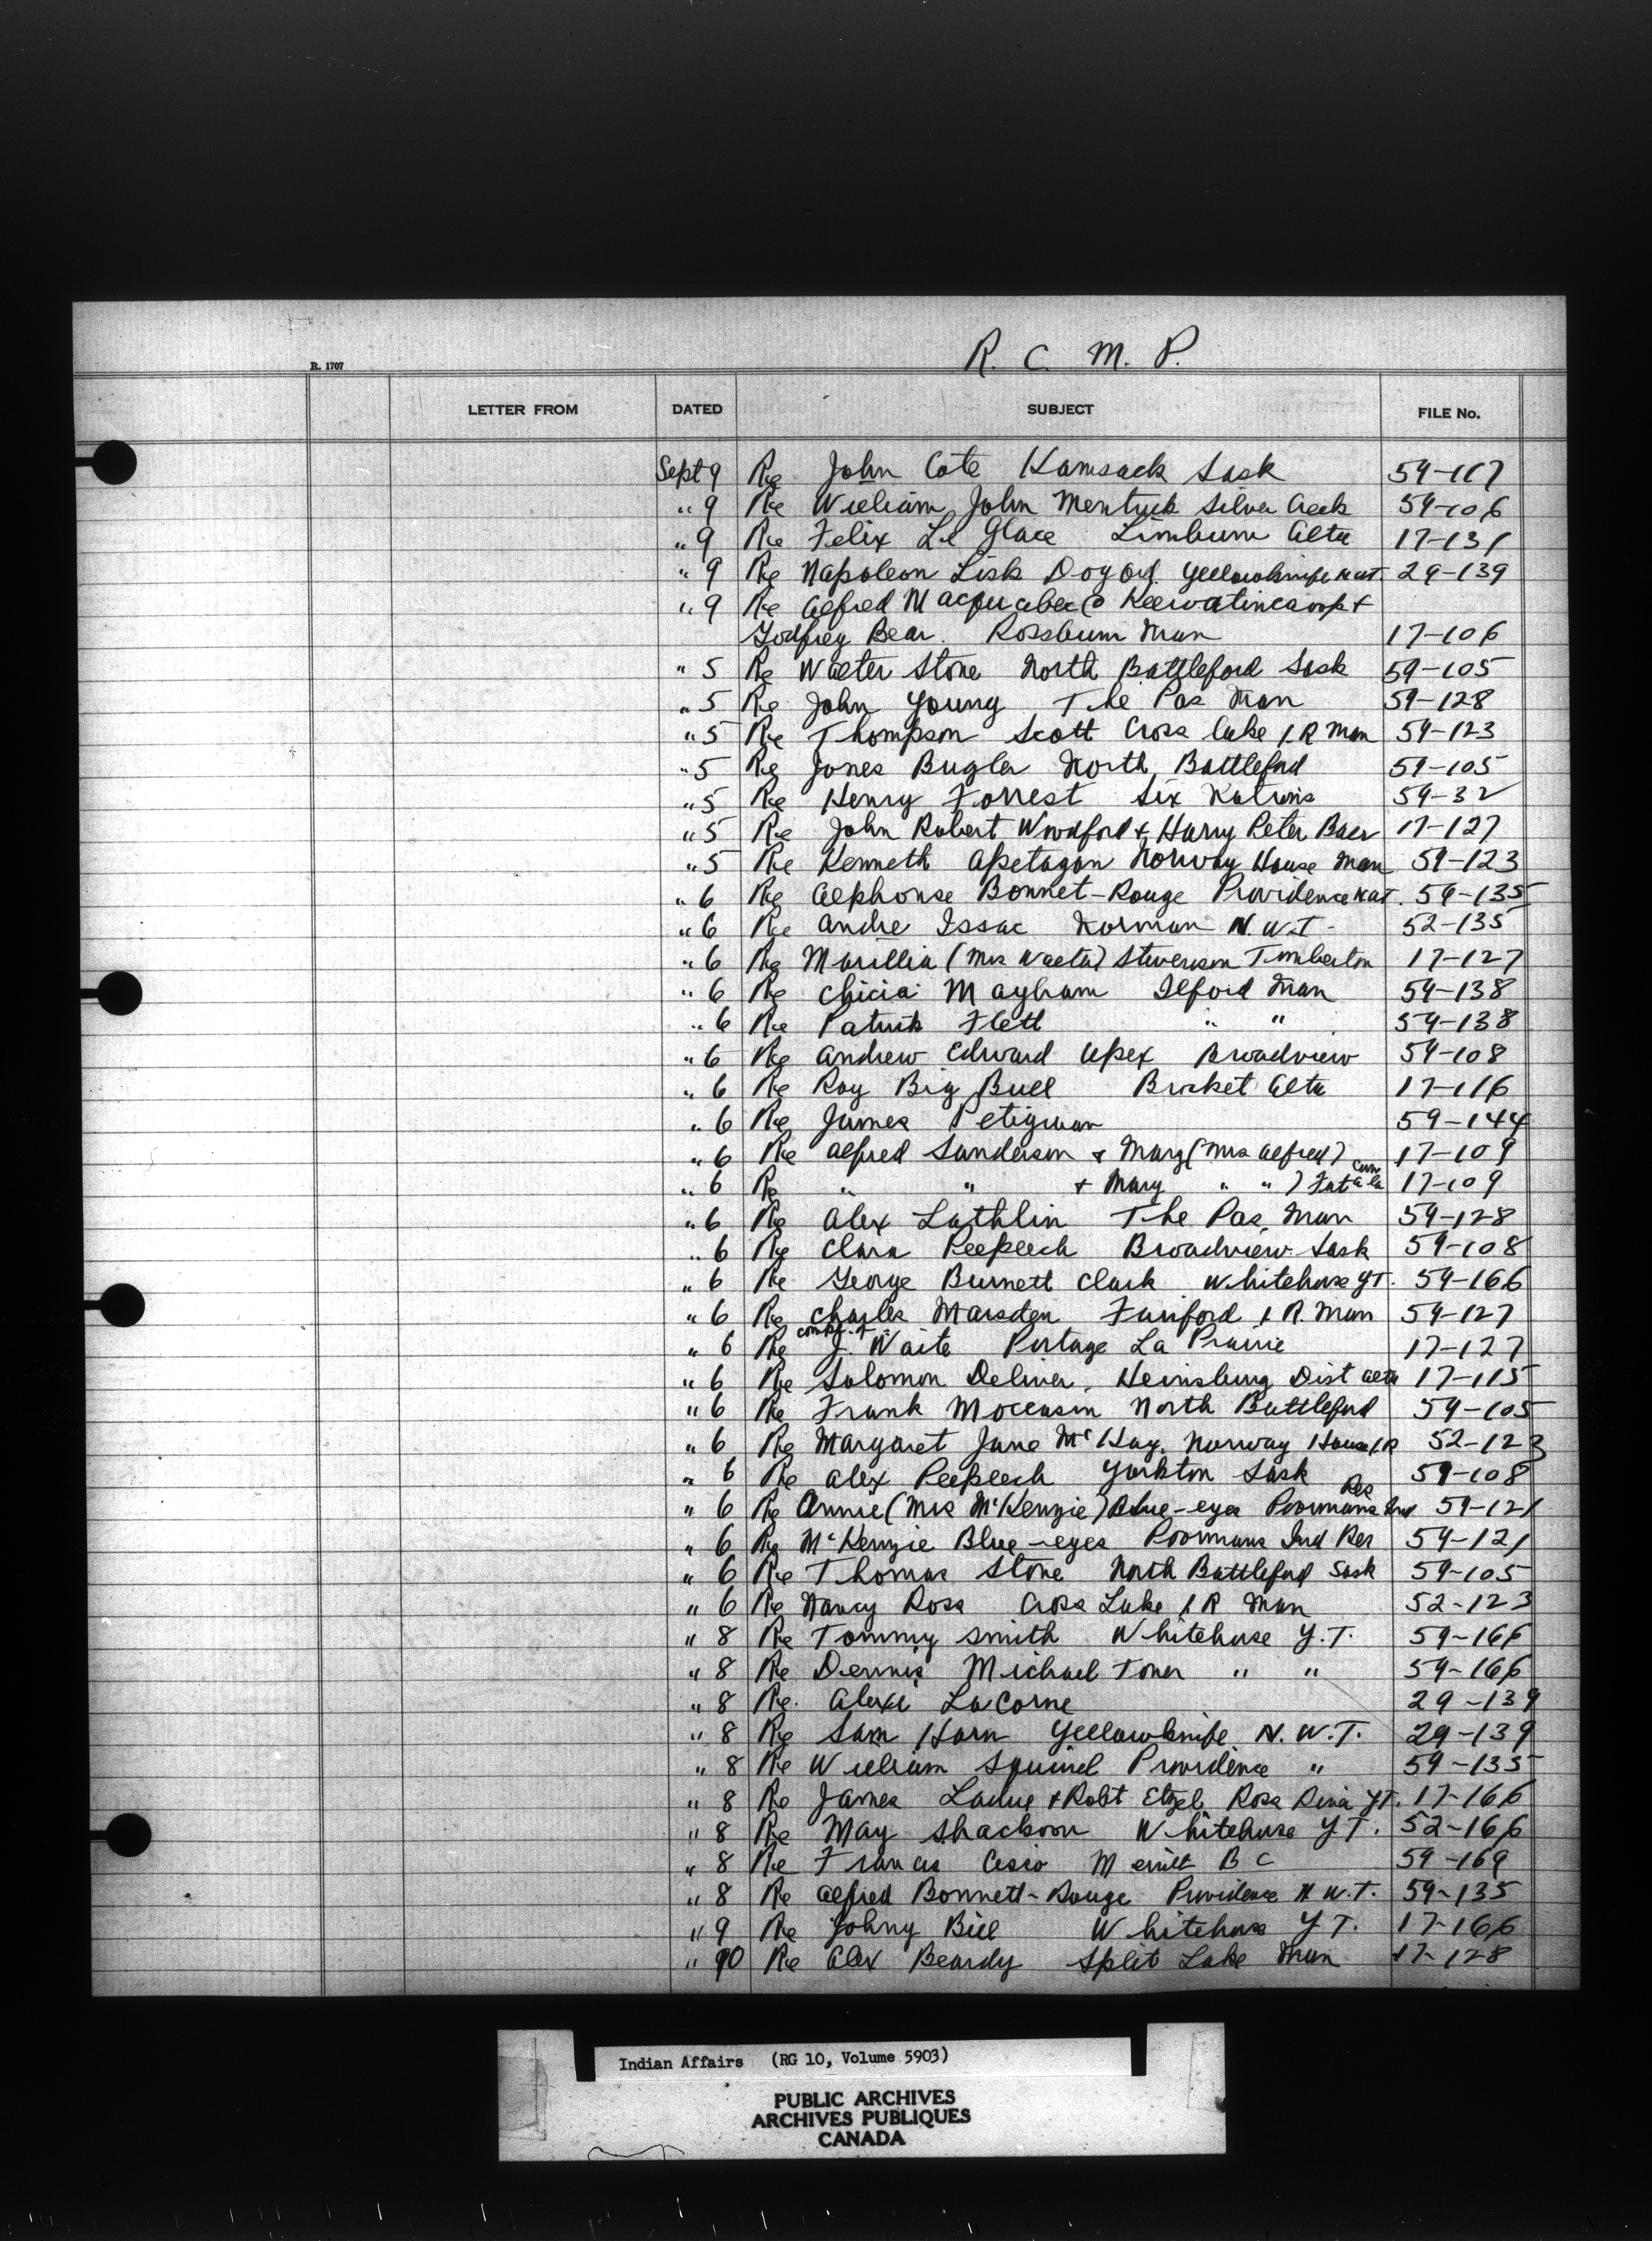 R. C. M. P.
R. 1707
LETTER FROM DATED SUBJECT FILE No.
Sept 9 Re John Cote Kamsack Sask 59-117
" 9 Re William John Mentuck Silver Creek 59-106
" 9 Re Felix Le Glace Alta 17-131
" 9 Re Napoleon Lisk Yellowknife N.W.T. 29-139
" 9 Re Alfred
Godfrey Bear. Rossburn Man 17-106
" 5 Re Walter Stone North Battleford Sask 59-105
" 5 Re John Young The Pas Man 59-128
" 5 Re Thompson Scott Cross Lake I.R Man 59-123
" 5 Re Jones Bugler North Battleford 59-105
" 5 Re Henry Forrest Six Nations 59-32
" 5 Re John Robert Woodford & Harry Peter Baer 17-127
" 5 Re Kenneth Apetagon Norway House Man 59-123
" 6 Re Alphonse Bonnet-Rouge Providence N.W.T. 59-135
" 6 Re Andre Issac Norman N.W.T. 52-135
" 6 Re Marillia (Mrs Walter) Stevenson Timberton 17-127
" 6 Re Mayham Ilford Man 59-138
" 6 Re Patrick Flett " " 59-138
" 6 Re Andrew Edward Apex Broadview 59-108
" 6 Re Roy Big Bull Brocket Alta 17-116
" 6 Re James Petigwan 59-144
" 6 Re Alfred Sanderson & Mary (Mrs Alfred) 17-109
" 6 Re " " & Mary " " ) 17-109
" 6 Re Alex Lathlin The Pas, Man 59-128
" 6 Re Clara Peepeech Broadview Sask 59-108
" 6 Re George Burnett Clark Whitehorse Y.T. 59-166
" 6 Re Charles Marsden Fairford I.R. Man 59-127
" 6 Re J. Waite Portage La Prairie 17-127
" 6 Re Solomon Deliver, Heinsburg Dist Alta 17-115
" 6 Re Frank Moccasin North Battleford 59-105
" 6 Re Margaret Jane McKay, Norway House I.R 52-123
" 6 Re Alex Peepeech Yorkton Sask 59-108
" 6 Re Annie (Mrs McKenzie) Blue-eyes Poormans Ind Res 59-121
" 6 Re McKenzie Blue-eyes Poormans Ind Res 59-121
" 6 Re Thomas Stone North Battleford Sask 59-105
" 6 Re Nancy Ross Cross Lake I R Man 52-123
" 8 Re Tommy Smith Whitehorse Y.T. 59-166
" 8 Re Dennis Michael Toner " " 59-166
" 8 Re. Alexi LaCorne 29-139
" 8 Re Sam Horn Yellowknife N.W.T. 29-139
" 8 Re William Squirrel Providence " 59-135
" 8 Re James Ladue & Robt Etzel Ross River Y.T. 17-166
" 8 Re May Shackoon Whitehorse Y.T. 52-166
" 8 Re Francis Merritt B C 59-169
" 8 Re Alfred Bonnett-Rouge Providence N.W.T. 59-135
" 9 Re Johny Bill Whitehorse Y T. 17-166
" 10 Re Alex Beardy Split Lake Man 17-128
Indian Affairs (RG 10, Volume 5903)
PUBLIC ARCHIVES
ARCHIVES PUBLIQUES
CANADA